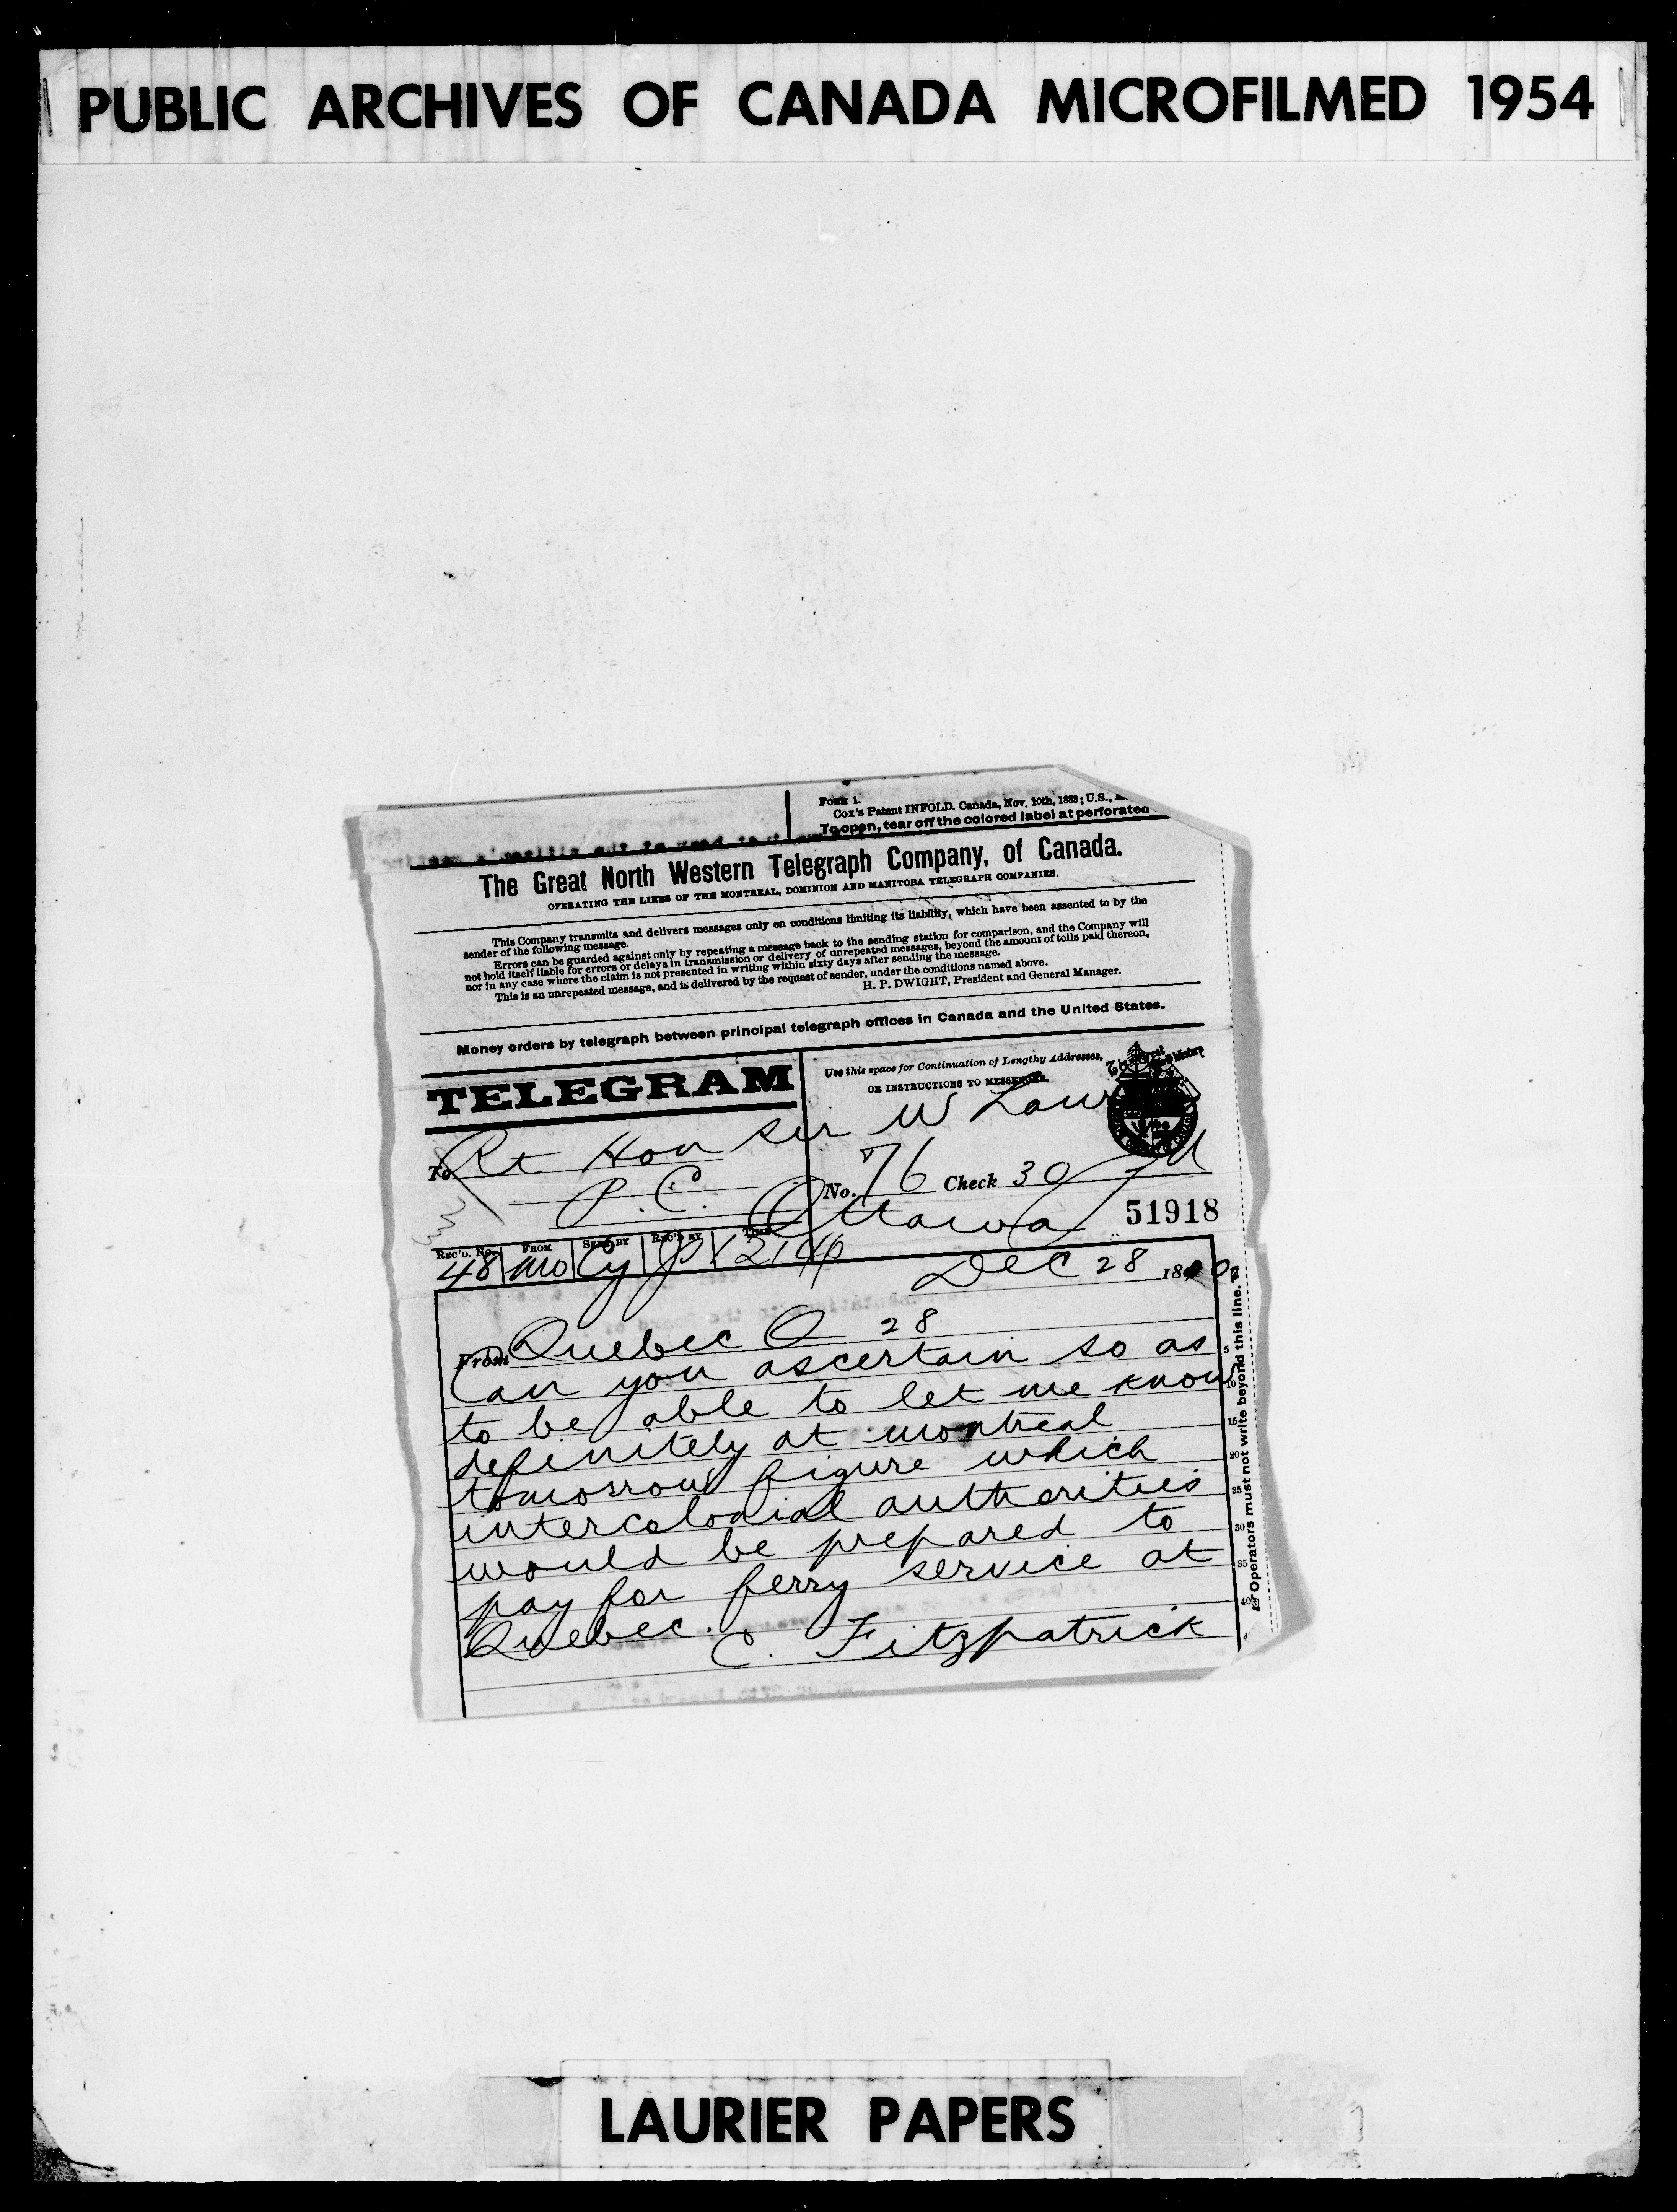 PUBLIC ARCHIVES OF CANADA MICROFILMED 1954
FORM 1.
Cox's Patent INFOLD. Canada, Nov. 10th, 1883; U.S.,
To open, tear off the colored label at perforated
The Great North Western Telegraph Company, of Canada.
OPERATING THE LINES OF THE MONTREAL, DOMINION AND MANITOBA TELEGRAPH COMPANIES.
This Company transmits and delivers messages only on conditions limiting its liability, which have been assented to by the
sender of the following message.
Errors can be guarded against only by repeating a message back to the sending station for comparison, and the Company will
not hold itself liable for errors or delays in transmission or delivery of unrepeated messages, beyond the amount of tolls paid thereon,
nor in any case where the claim is not presented in writing within sixty days after sending the message.
This is an unrepeated message, and is delivered by the request of sender, under the conditions named above.
H. P. DWIGHT, President and General Manager.
Money orders by telegraph between principal telegraph offices in Canada and the United States.
TELEGRAM
Use this space for Continuation of Lengthy Addresses,
OR INSTRUCTIONS TO MESSENGER.
To Rt Hon Sir W Laur
P. C.
No. 76 Check 30
Ottawa
51918
REC'D. No. FROM SENT BY REC'D BY TIME
48 Mo Cy
Dec 28 18
From Quebec Q 28
Can you ascertain so as
to be able to let me know
definitely at montreal
tomorrow figure which
intercolonial authorities
would be prepared to
pay for ferry service at
Quebec.
C. Fitzpatrick
5
10
15
20
25
30
35
40
Operators must not write beyond this line.
LAURIER PAPERS